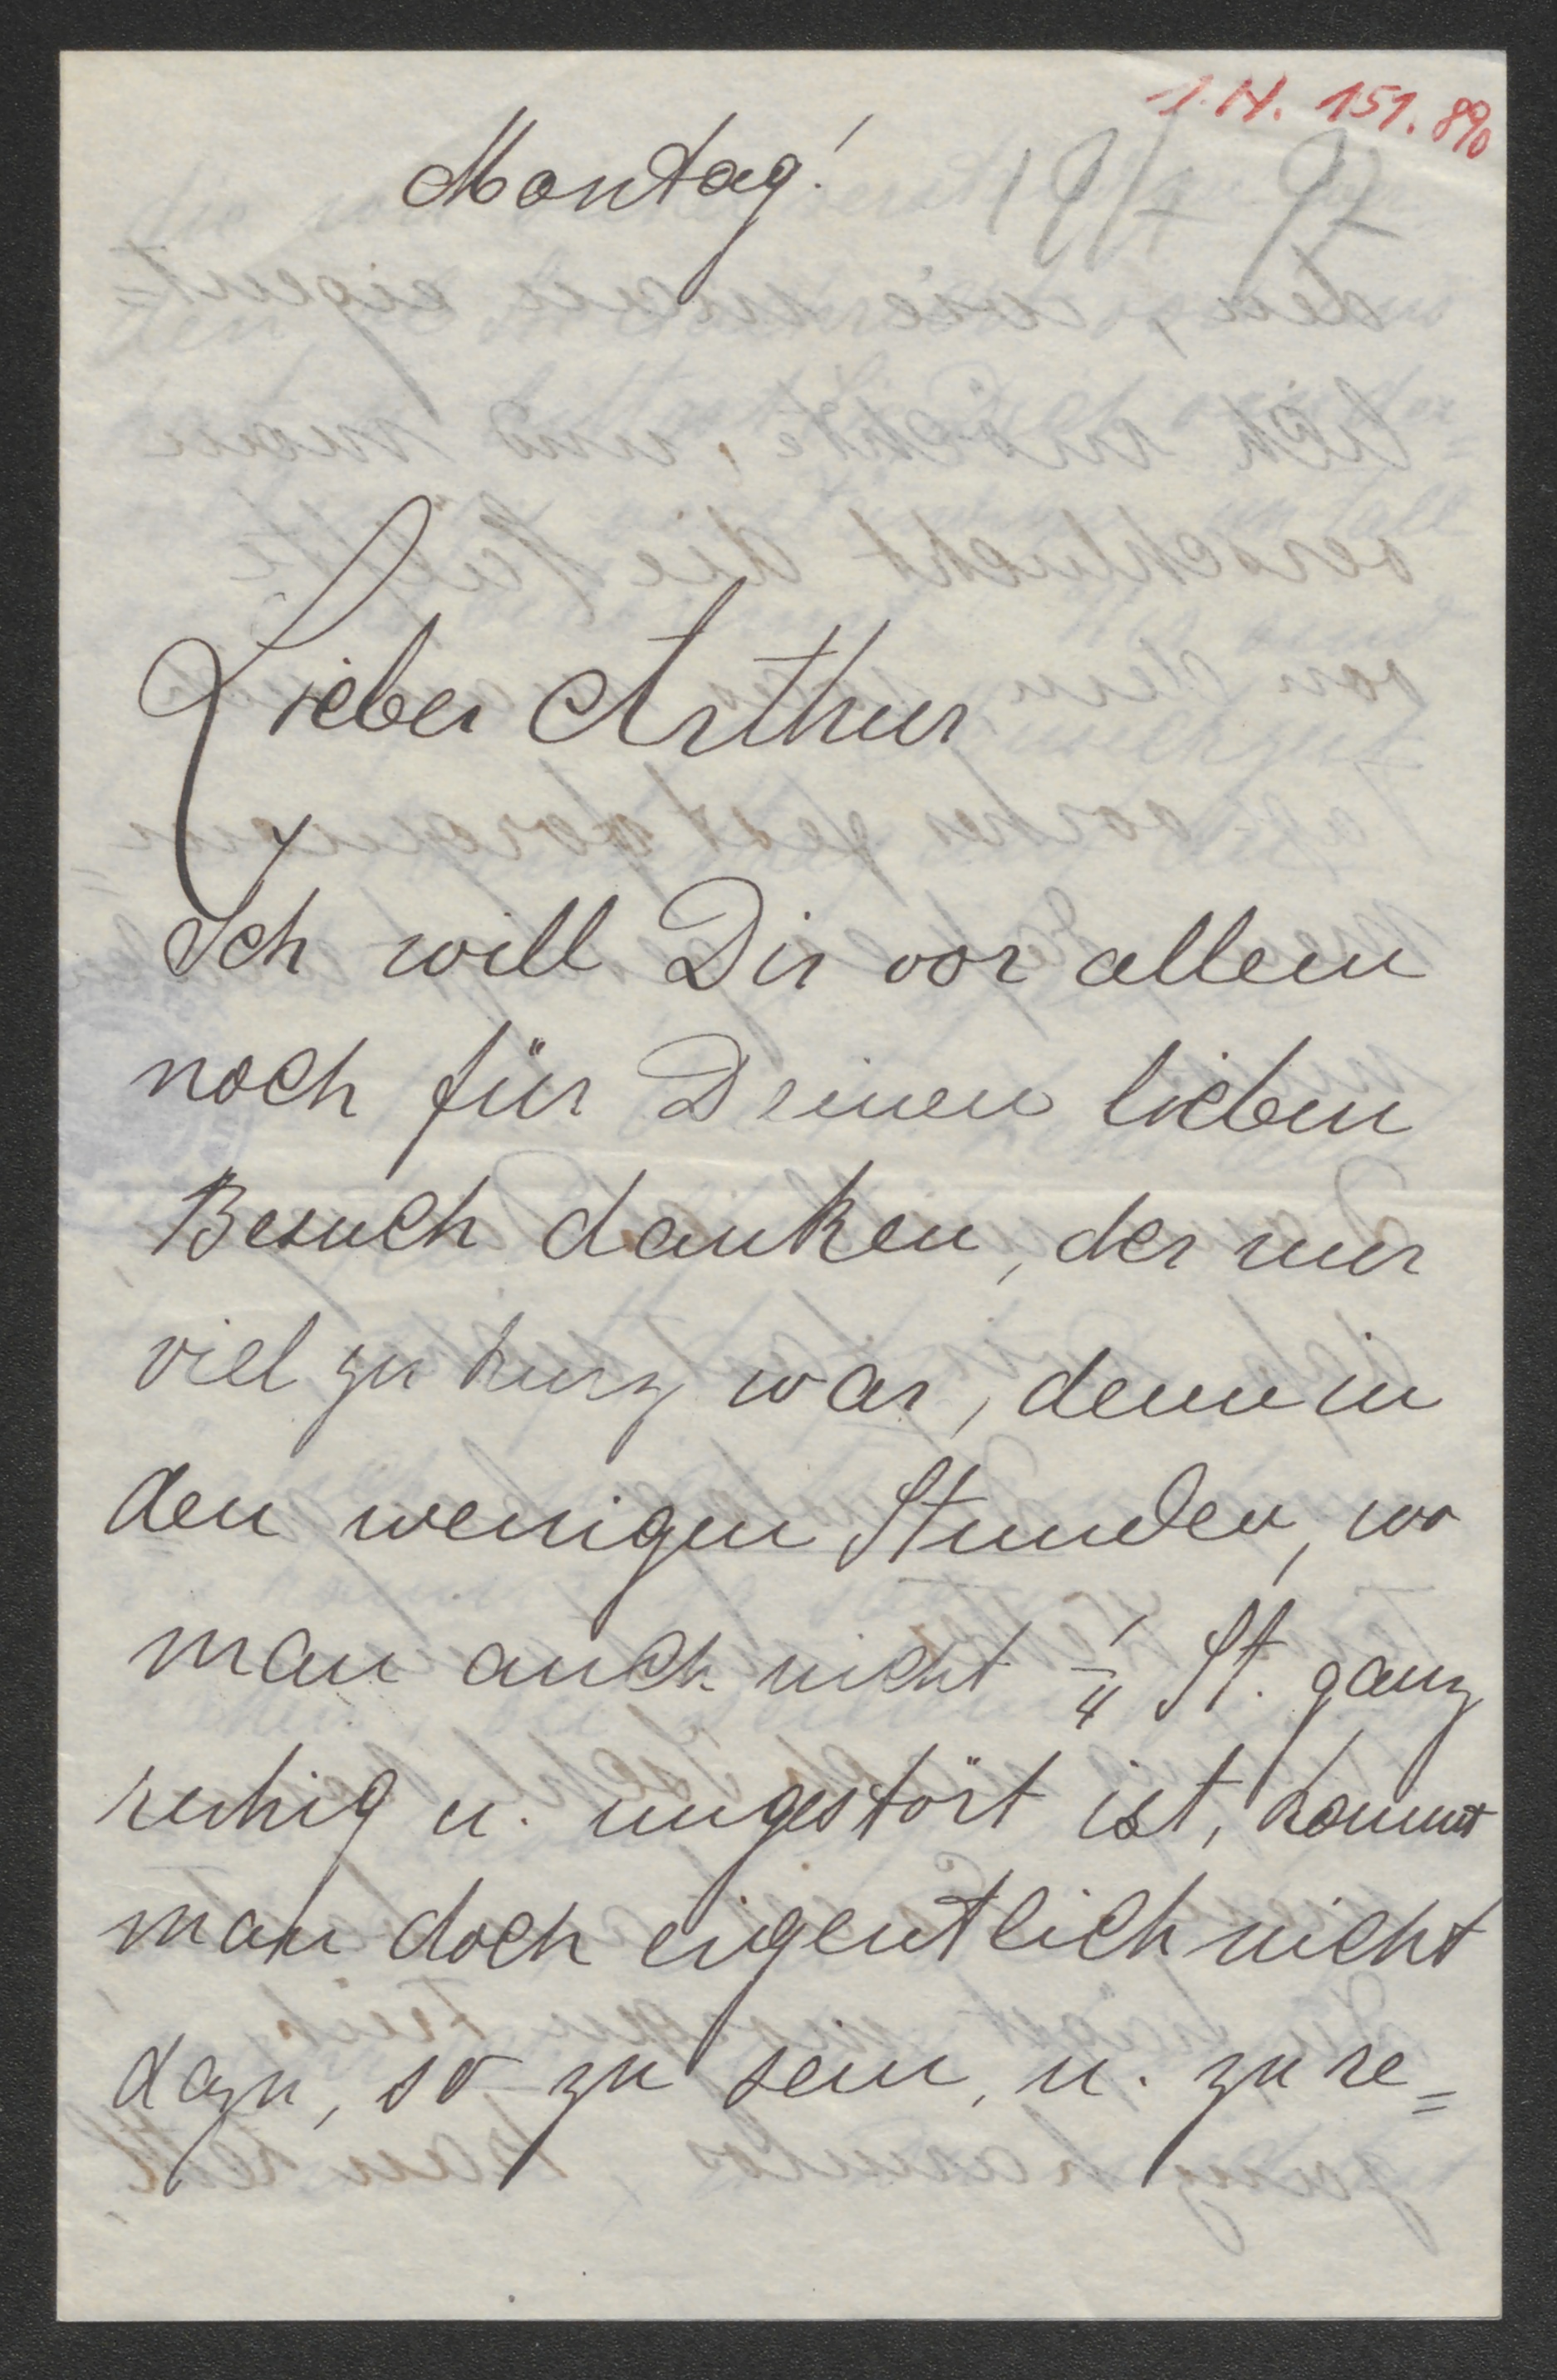 I.N. 151.890
Montag! 19/7 97
Lieber Arthur
Ich will Dir vor allem
noch für Deinen lieben
Besuch danken, der nur
viel zu kurz war, denn in
den wenigen Stunden, wo
man auch nicht ¼ St. ganz
ruhig u. ungestört ist, kommt
man doch eigentlich nicht
dazu, so zu sein, u. zu re=